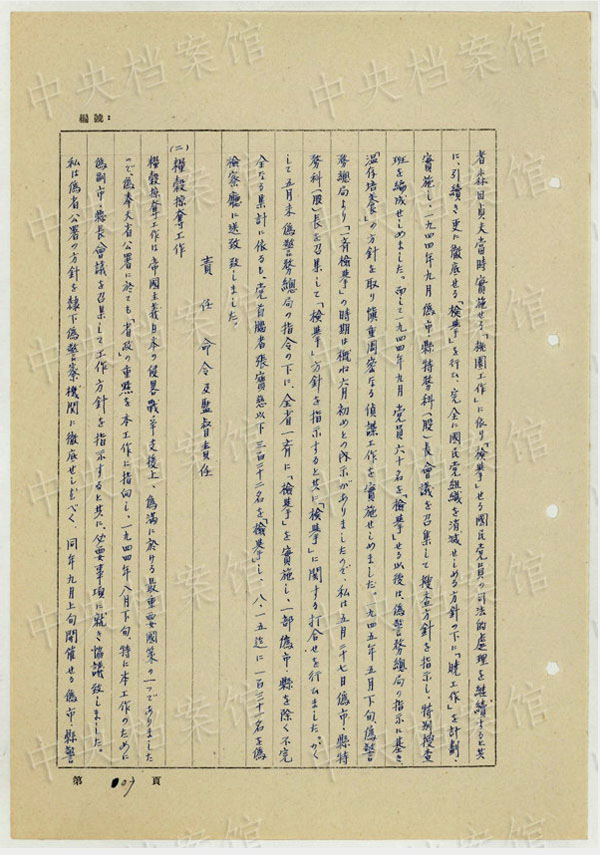 編號：
者森田貞夫當時實施せる「桃園工作」に依り「檢擧」せる國民党員の司法的處理を継續すると共
に、引續き更に徹底せる「檢擧」を行ひ、完全に國民党組織を消滅せしめる方針の下に「暁工作」を計劃、
實施し、一九四四年九月偽市・縣特務科(股)長會議を召集して搜査方針を指示し、特別搜査
班を編成せしめました。而して一九四四年九月党員六十名を「檢擧」せる以後は、偽警務總局の指示に基き、
「温存培養」の方針を取り慎重周密なる偵諜工作を實施せしめました。一九四五年五月下旬偽警
務總局より「一斉檢擧」の時期は概ね六月初めとの內示がありましたので、私は五月二十七日偽市・縣特
務科(股)長を召集して「檢擧」方針を指示すると共に「檢擧」に関する打合せを行ひました。かく
して五月末偽警務總局の指令の下に、全省一斉に「檢擧」を實施し、一部偽市・縣を除く不完
全なる集計に依るも、党首腦者張寶慈以下三百二十二名を「檢擧」し、八・一五迄に一百三十一名を偽
檢察廳に送致致しました。
責任 命令及監督責任
(二) 糧穀掠奪工作
糧穀掠奪工作は帝國主義日本の侵畧戰爭支援上、偽滿に於ける最重要國策の一つでありました
ので、偽奉天省公署に於ても「省政」の重點を本工作に指向し、一九四四年八月下旬、特に本工作のために
偽副市・縣長會議を召集して工作方針を指示すると共に、必要事項に就き協議致しました。
私は偽省公署の方針を隷下偽警察機關に徹底せしむべく、同年九月上旬開催せる偽市・縣警
第 107 頁
中央档案馆